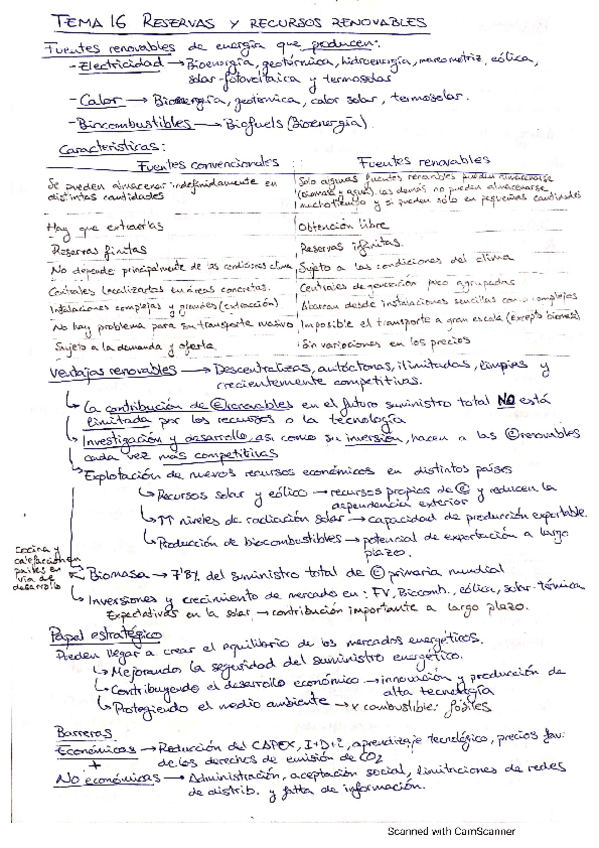 TEMA 16 RESERVAS Y RECURSOS RENOVABLES
Fuentes renovables de energía que producen:
- Electricidad → Bioenergía, geotérmica, hidroenergía, mareomotriz, eólica,
solar-fotovoltaica y termosolar
- Calor → Bioenergía, geotérmica, calor solar, termosolar.
- Biocombustibles → Biofuels (Bioenergía)
Características:
Fuentes convencionales Fuentes renovables
Se pueden almacenar indefinidamente en distintas cantidades
Sólo algunas fuentes renovables pueden almacenarse
(biomasa y agua), las demás no pueden almacenarse
mucho tiempo y si pueden sólo en pequeñas cantidades
Hay que extraerlas Obtención libre
Reservas finitas Reservas infinitas.
No depende principalmente de las condiciones clima Sujeto a las condiciones del clima
Centrales localizadas en áreas concretas. Centrales de generación poco agrupadas
Instalaciones complejas y grandes (extracción) Abarcan desde instalaciones sencillas con complejas
No hay problema para su transporte masivo Imposible el transporte a gran escala (excepto biomasa)
Sujeto a la demanda y oferta Sin variaciones en los precios
Ventajas renovables → Descentralizas, autóctonas, ilimitadas, limpias y
crecientemente competitivas.
↳ La contribución de Ⓔ renovables en el futuro suministro total NO está
limitada por los recursos o la tecnología
↳ Investigación y desarrollo, así como su inversión, hacen a las Ⓔ renovables
cada vez más competitivas
↳ Explotación de nuevos recursos económicos en distintos países
↳ Recursos solar y eólico → recursos propios de Ⓔ y reducen la
dependencia exterior
↳ ↑↑ niveles de radiación solar → capacidad de producción exportable.
↳ Producción de biocombustibles → potencial de exportación a largo
plazo.
cocina y
calefacción en
países en
vía de
desarrollo
Biomasa → 7'8% del suministro total de Ⓔ primaria mundial
↳ Inversiones y crecimiento de mercado en: FV, Biocomb., eólica, solar-térmica
Expectativas en la solar → contribución importante a largo plazo.
Papel estratégico
Pueden llegar a crear el equilibrio de los mercados energéticos.
↳ Mejorando la seguridad del suministro energético.
↳ Contribuyendo el desarrollo económico → innovación y producción de
alta tecnología
↳ Protegiendo el medio ambiente → x combustible: fósiles
Barreras
Económicas → Reducción del CAPEX, I+D+i, aprendizaje tecnológico, precios fav.
de los derechos de emisión de CO2
+
No económicas → Administración, aceptación social, limitaciones de redes
de distrib. y falta de información.
Scanned with CamScanner